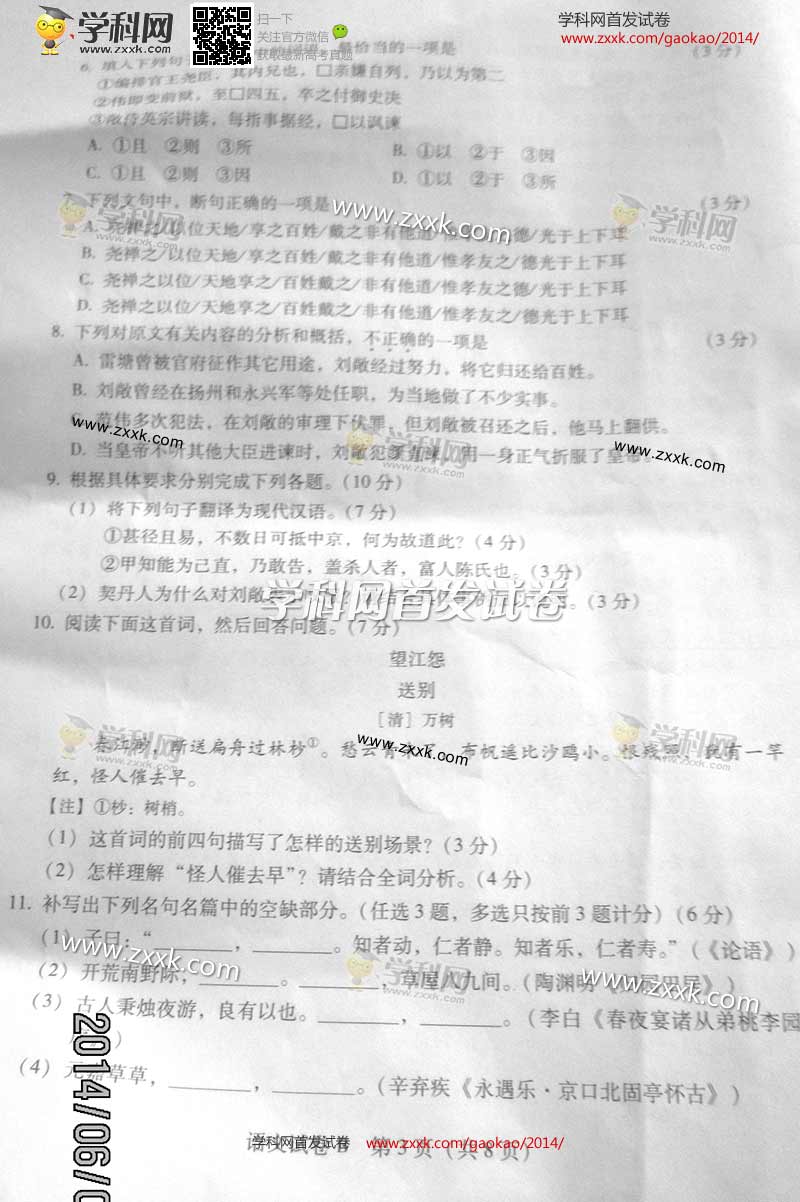 学科网 www.zxxk.com
扫一下
关注官方微信
获取最新高考真题
学科网首发试卷
www.zxxk.com/gaokao/2014/
6. 填入下列句 最恰当的一项是 (3分)
①编排官王尧臣，其内兄也，□亲嫌自列，乃以为第二
②伟即变前狱，至□四五，卒之付御史决
③敞侍英宗讲读，每指事据经，□以讽谏
A. ①且 ②则 ③所 B. ①以 ②于 ③因
C. ①且 ②则 ③因 D. ①以 ②于 ③所
7. 下列文句中，断句正确的一项是 (3分)
A. 尧禅之/以位天地/享之百姓/戴之非有他道/惟孝友之/德/光于上下耳
B. 尧禅之/以位天地/享之百姓/戴之非有他道/惟孝友之德/光于上下耳
C. 尧禅之以位/天地享之/百姓戴之/非有他道/惟孝友之/德/光于上下耳
D. 尧禅之以位/天地享之/百姓戴之/非有他道/惟孝友之德/光于上下耳
8. 下列对原文有关内容的分析和概括，不正确的一项是 (3分)
A. 雷塘曾被官府征作其它用途，刘敞经过努力，将它归还给百姓。
B. 刘敞曾经在扬州和永兴军等处任职，为当地做了不少实事。
伟多次犯法，在刘敞的审理下伏罪，但刘敞被召还之后，他马上翻供。
D. 当皇帝不听其他大臣进谏时，刘敞犯颜直谏，用一身正气折服了皇帝。
9. 根据具体要求分别完成下列各题。(10分)
(1) 将下列句子翻译为现代汉语。(7分)
①甚径且易，不数日可抵中京，何为故道此？(4分)
②甲知能为己直，乃敢告，盖杀人者，富人陈氏也。(3分)
(2) 契丹人为什么对刘敞 (3分)
学科网首发试卷
10. 阅读下面这首词，然后回答问题。(7分)
望江怨
送别
[清] 万树
春江渺，断送扁舟过林杪①。愁云 布帆遥比沙鸥小。恨残 犹有一竿
红，怪人催去早。
【注】①杪：树梢。
(1) 这首词的前四句描写了怎样的送别场景？(3分)
(2) 怎样理解“怪人催去早”？请结合全词分析。(4分)
11. 补写出下列名句名篇中的空缺部分。(任选3题，多选只按前3题计分)(6分)
(1) 子曰：“______，______。知者动，仁者静。知者乐，仁者寿。”(《论语》)
(2) 开荒南野际，______。______，草屋八九间。(陶渊明《归园田居》)
(3) 古人秉烛夜游，良有以也。______，______。(李白《春夜宴诸从弟桃李园
(4) 元嘉草草，______，______。(辛弃疾《永遇乐·京口北固亭怀古》)
2014/06/0
语文试卷B 第3页（共8页）
学科网首发试卷 www.zxxk.com/gaokao/2014/